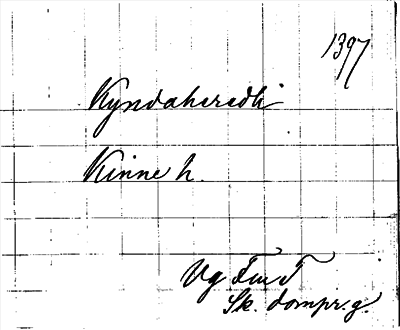 1397
Kyndahæredh
Kinne h.
Vg Fmd
Sk. dompr. g.